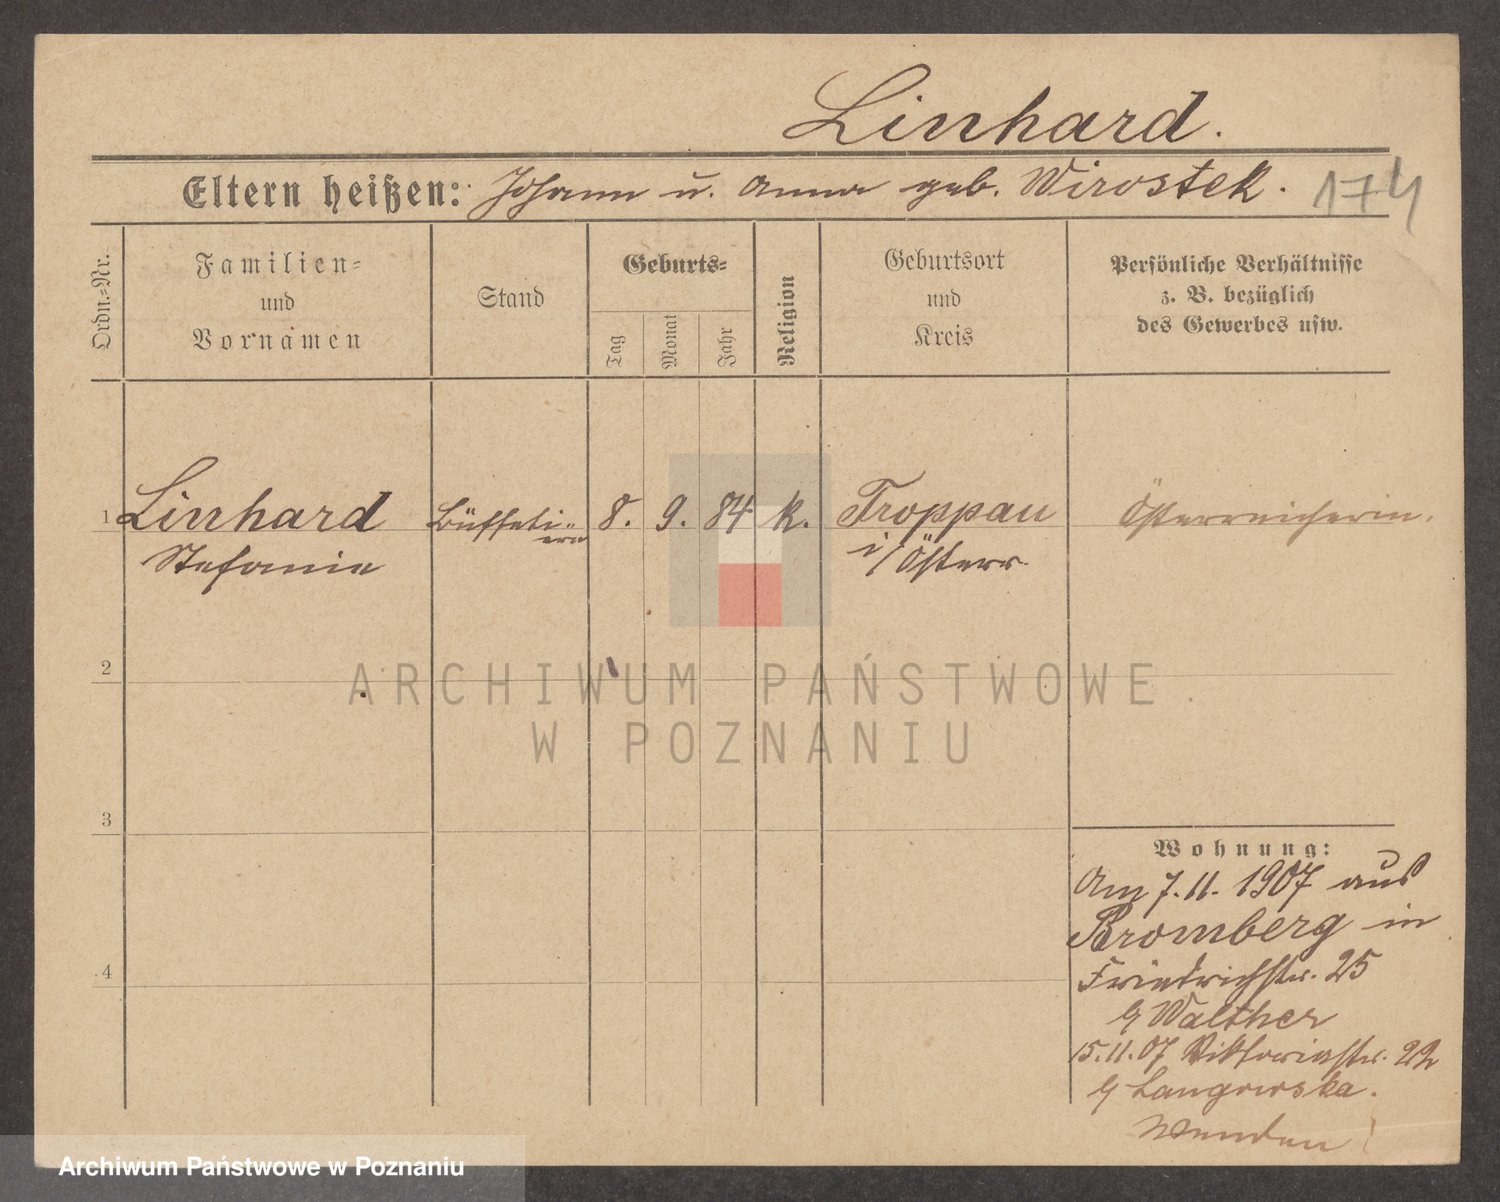 Linhard.
Eltern heißen: Johann u. Anna geb. Wirostek.
174
Ordn.-Nr.
Familien-
und
Vornamen
Stand
Geburts-
Tag
Monat
Jahr
Religion
Geburtsort
und
Kreis
Persönliche Verhältnisse
z. B. bezüglich
des Gewerbes usw.
1 Linhard Büffeti- 8. 9. 84 k. Troppau Österreicherin.
Stefanie i/Österr.
2
3
4
Wohnung:
Am 7.11. 1907 aus
Bromberg in
Friedrichstr. 25
b/ Walther
15.11.07 Viktoriastr. 22
b/ Langowska.
Wenden!
ARCHIWUM PAŃSTWOWE
W POZNANIU
Archiwum Państwowe w Poznaniu